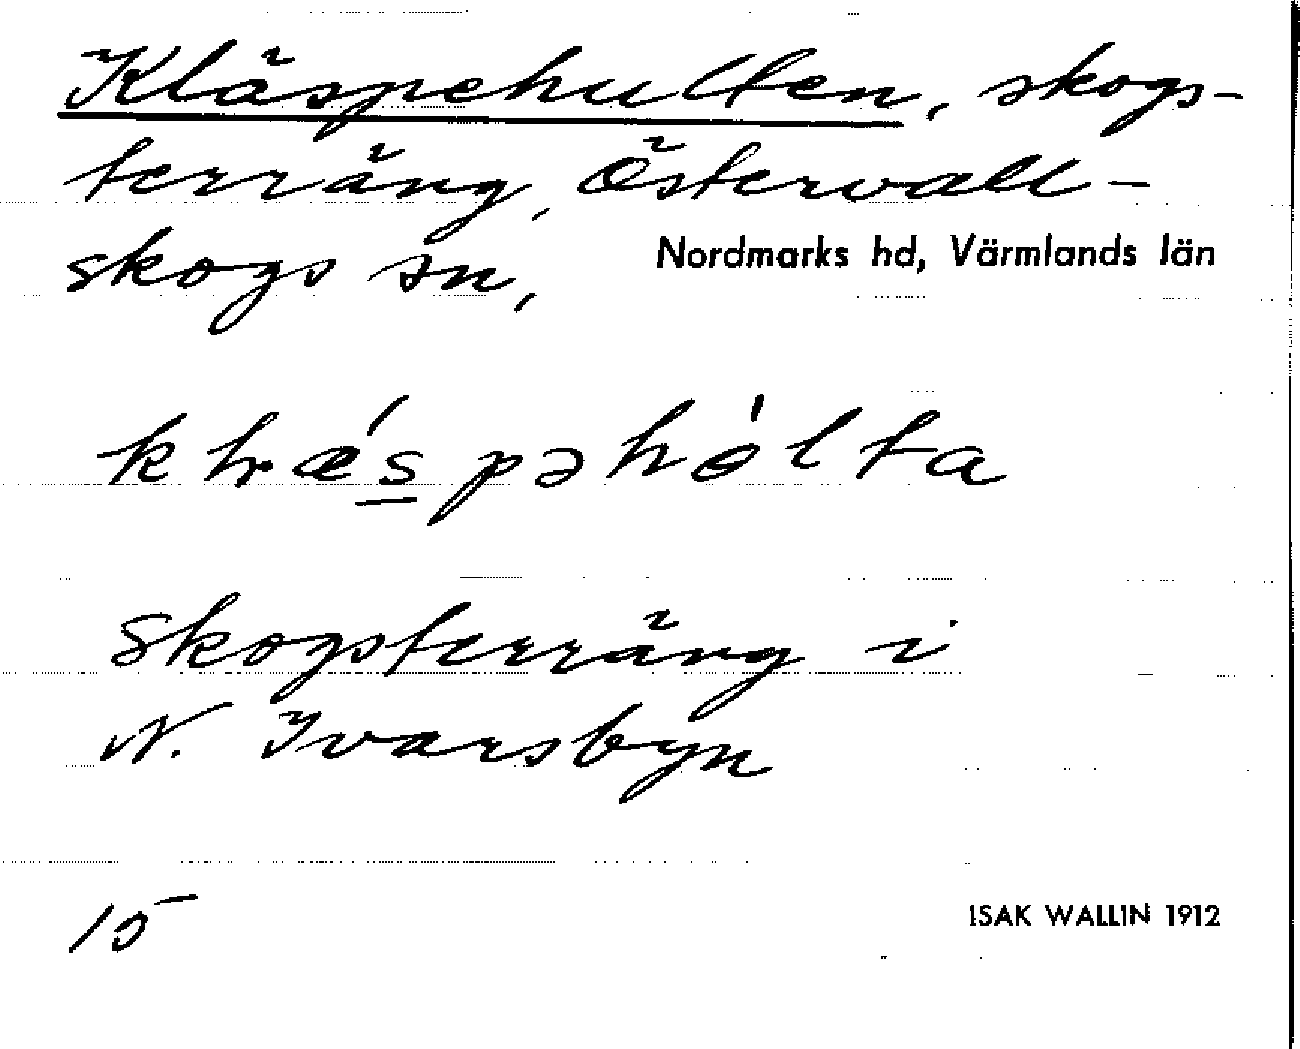 Kläspehulten, skogs-
terräng, Östervall-
skogs sn, Nordmarks hd, Värmlands län
skogsterräng i
N. Ivarsbyn
15
ISAK WALLIN 1912